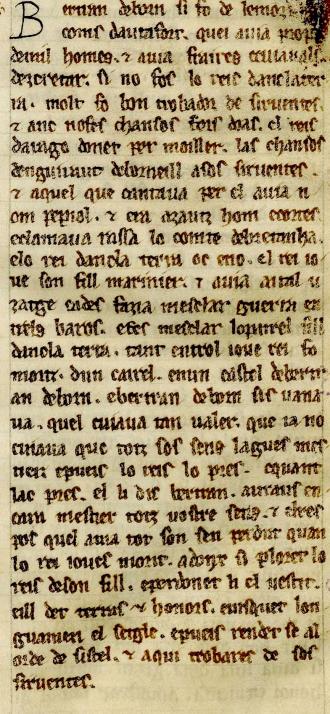 Bertran deborn si fo de lemozi
coms dautafort. quel auia prop
demil homes. & auia fraires cuiaualz
dezeretar. si no fos lo reis danclater
ra. molt fo bon trobador de siruentes
& anc nofes chansos fors doas. el reis
darago donet per moiller. las chansos
denguiraut deborneill asos siruentes.
& aquel que cantaua per el auia n
om pepiol. & era azautz hom e cortes
e clamaua rassa lo comte debretanha.
elo rei dancla terra oc eno. el rei io
ue son fill marinier. & auia aital u
zatge cades fazia mesclar guerra en
trels baros. e fes mesclar lopairel fill
dancla terra. tant entrol ioue rei fo
mortz. dun cairel. enun castel debertr
an deborn. ebertran deborn sis uana
ua. quel cuiaua tan ualer. que ia no
cuiaua que totz sos sens lagues mes
tier epueis lo reis lo pres. equant
lac pres. el li dis bertran. auraus en
cara mestier totz uostre sens. & el res
pos quel auia tot son sen perdut quan
lo rei ioues moric. adonc si ploret lo
reis deson fill. eperdonet li el uestit.
eill det terras & honors. euisquet lon
guamen el segle. epueis rendet se al
orde de sistel. & aqui trobaretz de sos
siruentes.